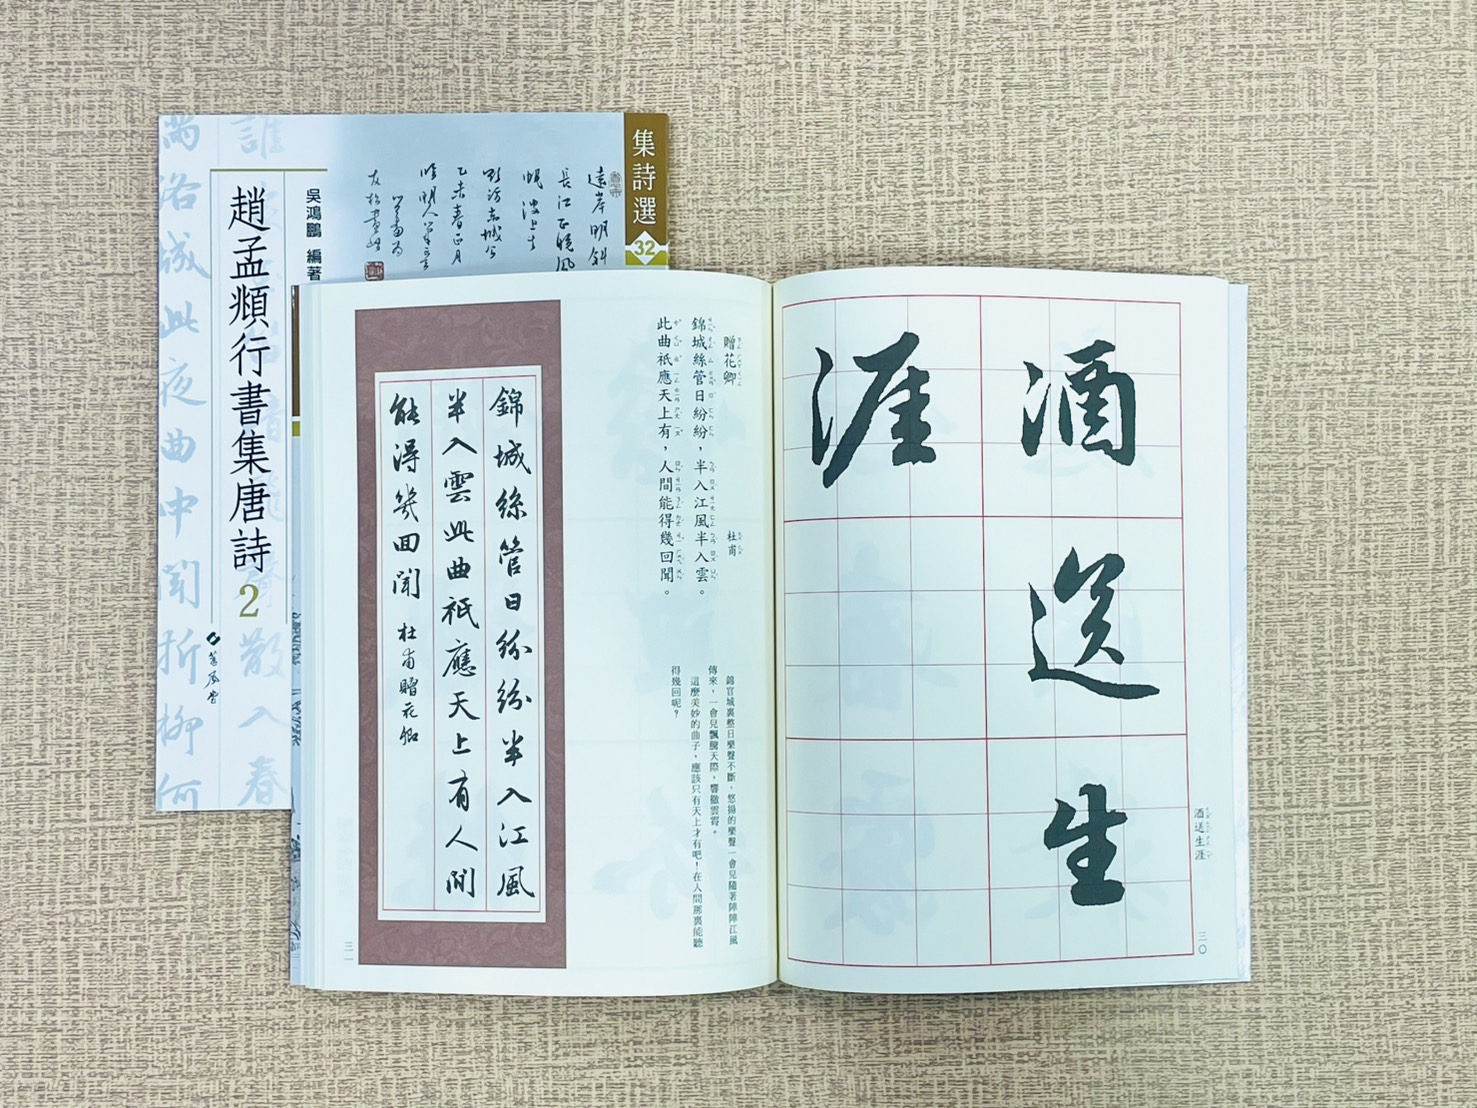 集詩選
32
吳鴻鵬 編著
趙孟頫行書集唐詩2
遠岸明斜
長江正曉風
帆波上
乙未春正月
誰
散入春
滿洛城此夜曲中聞折柳何
酒送生
涯
酒送生涯
三〇
贈花卿 杜甫
錦城絲管日紛紛，半入江風半入雲。
此曲祇應天上有，人間能得幾回聞。
錦官城裏整日樂聲不斷，悠揚的樂聲一會兒隨著陣陣江風
傳來，一會兒飄騰天際，響徹雲霄。
這麼美妙的曲子，應該只有天上才有吧！在人間那裏能聽
得幾回呢？
錦城絲管日紛紛半入江風
半入雲此曲祇應天上有人間
能得幾回聞 杜甫贈花卿
三一